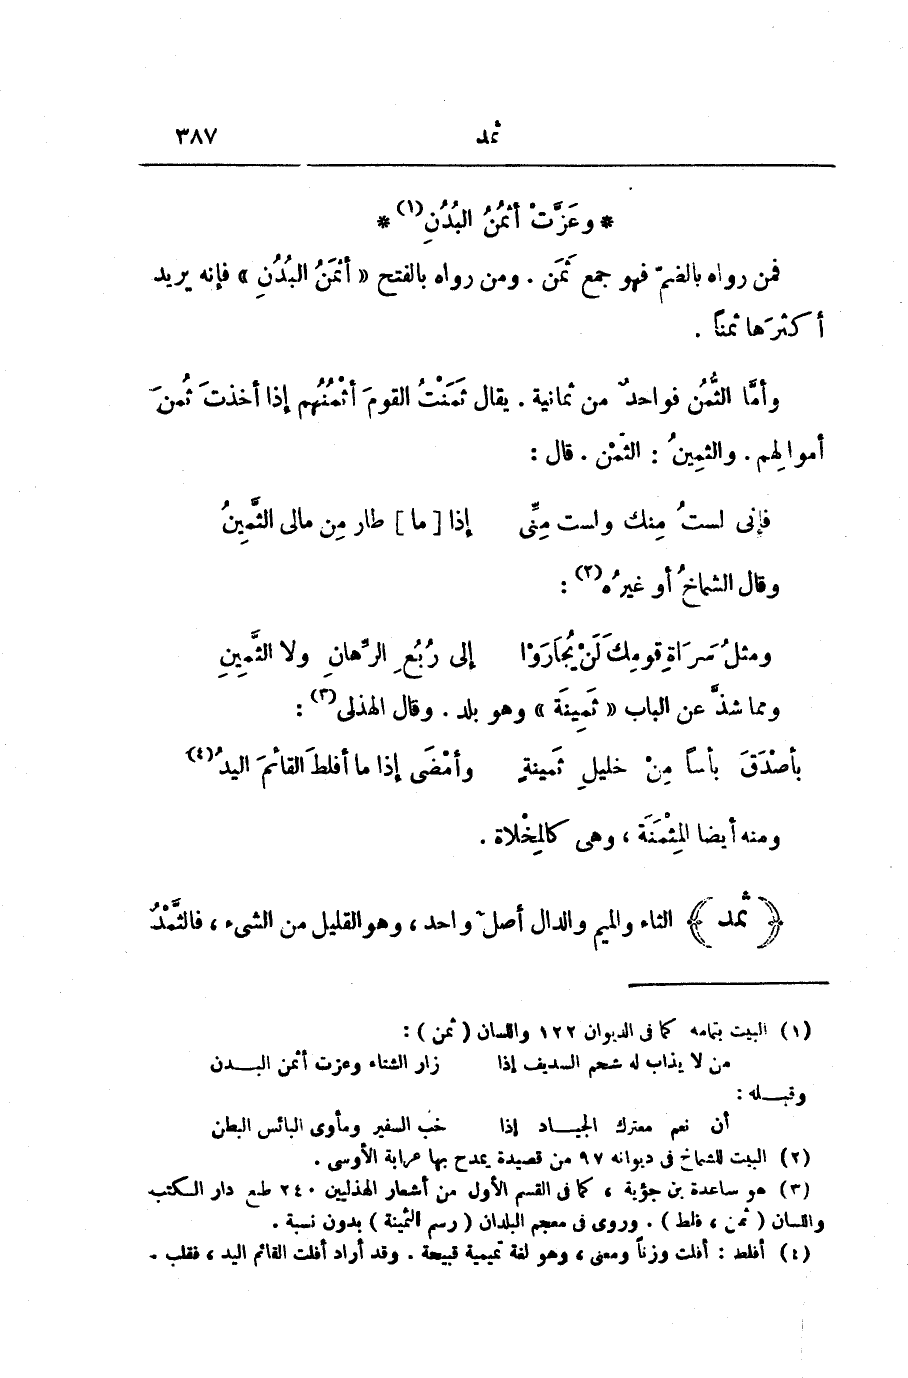 ثمد ٣٨٧
* وعَزَّتْ أثمُنُ البُدُنِ(١) *
فمن رواه بالضمّ فهو جمع ثَمَن . ومن رواه بالفتح « أثمَنُ البُدُنِ » فإنه يريد
أكثرَها ثمناً .
وأمَّا الثُّمُن فواحدٌ من ثمانية . يقال ثَمَنْتُ القومَ أثْمُنُهم إذا أخذتَ ثُمنَ
أموالهم . والثمِينُ : الثمْن . قال :
فإنى لستُ مِنك ولست مِنِّى إذا [ ما ] طار مِن مالى الثَّمِينُ
وقال الشماخُ أو غيرُه(٢) :
ومثلُ سَرَاةِ قومِك لَنْ يُجَارَوْا إلى رُبُعِ الرِّهانِ ولا الثَّمِينِ
ومما شذَّ عن الباب « ثَمِينَة » وهو بلد . وقال الهذلى(٣) :
بأصْدَقَ بأساً مِنْ خليلِ ثَمينةٍ وأمْضَى إذا ما أفلطَ القائمَ اليدُ(٤)
ومنه أيضا المِثْمَنَة ، وهى كالمِخْلاة .
﴿ ثمد ﴾ الثاء والميم والدال أصلٌ واحد ، وهو القليل من الشىء ، فالثَّمْدُ
(١) البيت بتمامه كما فى الديوان ١٢٢ واللسان ( ثمن ) :
من لا يذاب له شحم السديف إذا زار الشتاء وعزت أثمن البـــدن
وقبـــله :
أن نعم معترك الجيـــاد إذا خب السفير ومأوى البائس البطن
(٢) البيت للشماخ فى ديوانه ٩٧ من قصيدة يمدح بها عرابة الأوسى .
(٣) هو ساعدة بن جؤية ، كما فى القسم الأول من أشعار الهذليين ٢٤٠ طبع دار الكتب
واللسان ( ثمن ، فلط ) . وروى فى معجم البلدان ( رسم الثمينة ) بدون نسبة .
(٤) أفلط : أفلت وزناً ومعنى ، وهو لغة تميمية قبيحة . وقد أراد أفلت القائم اليد ، فقلب .